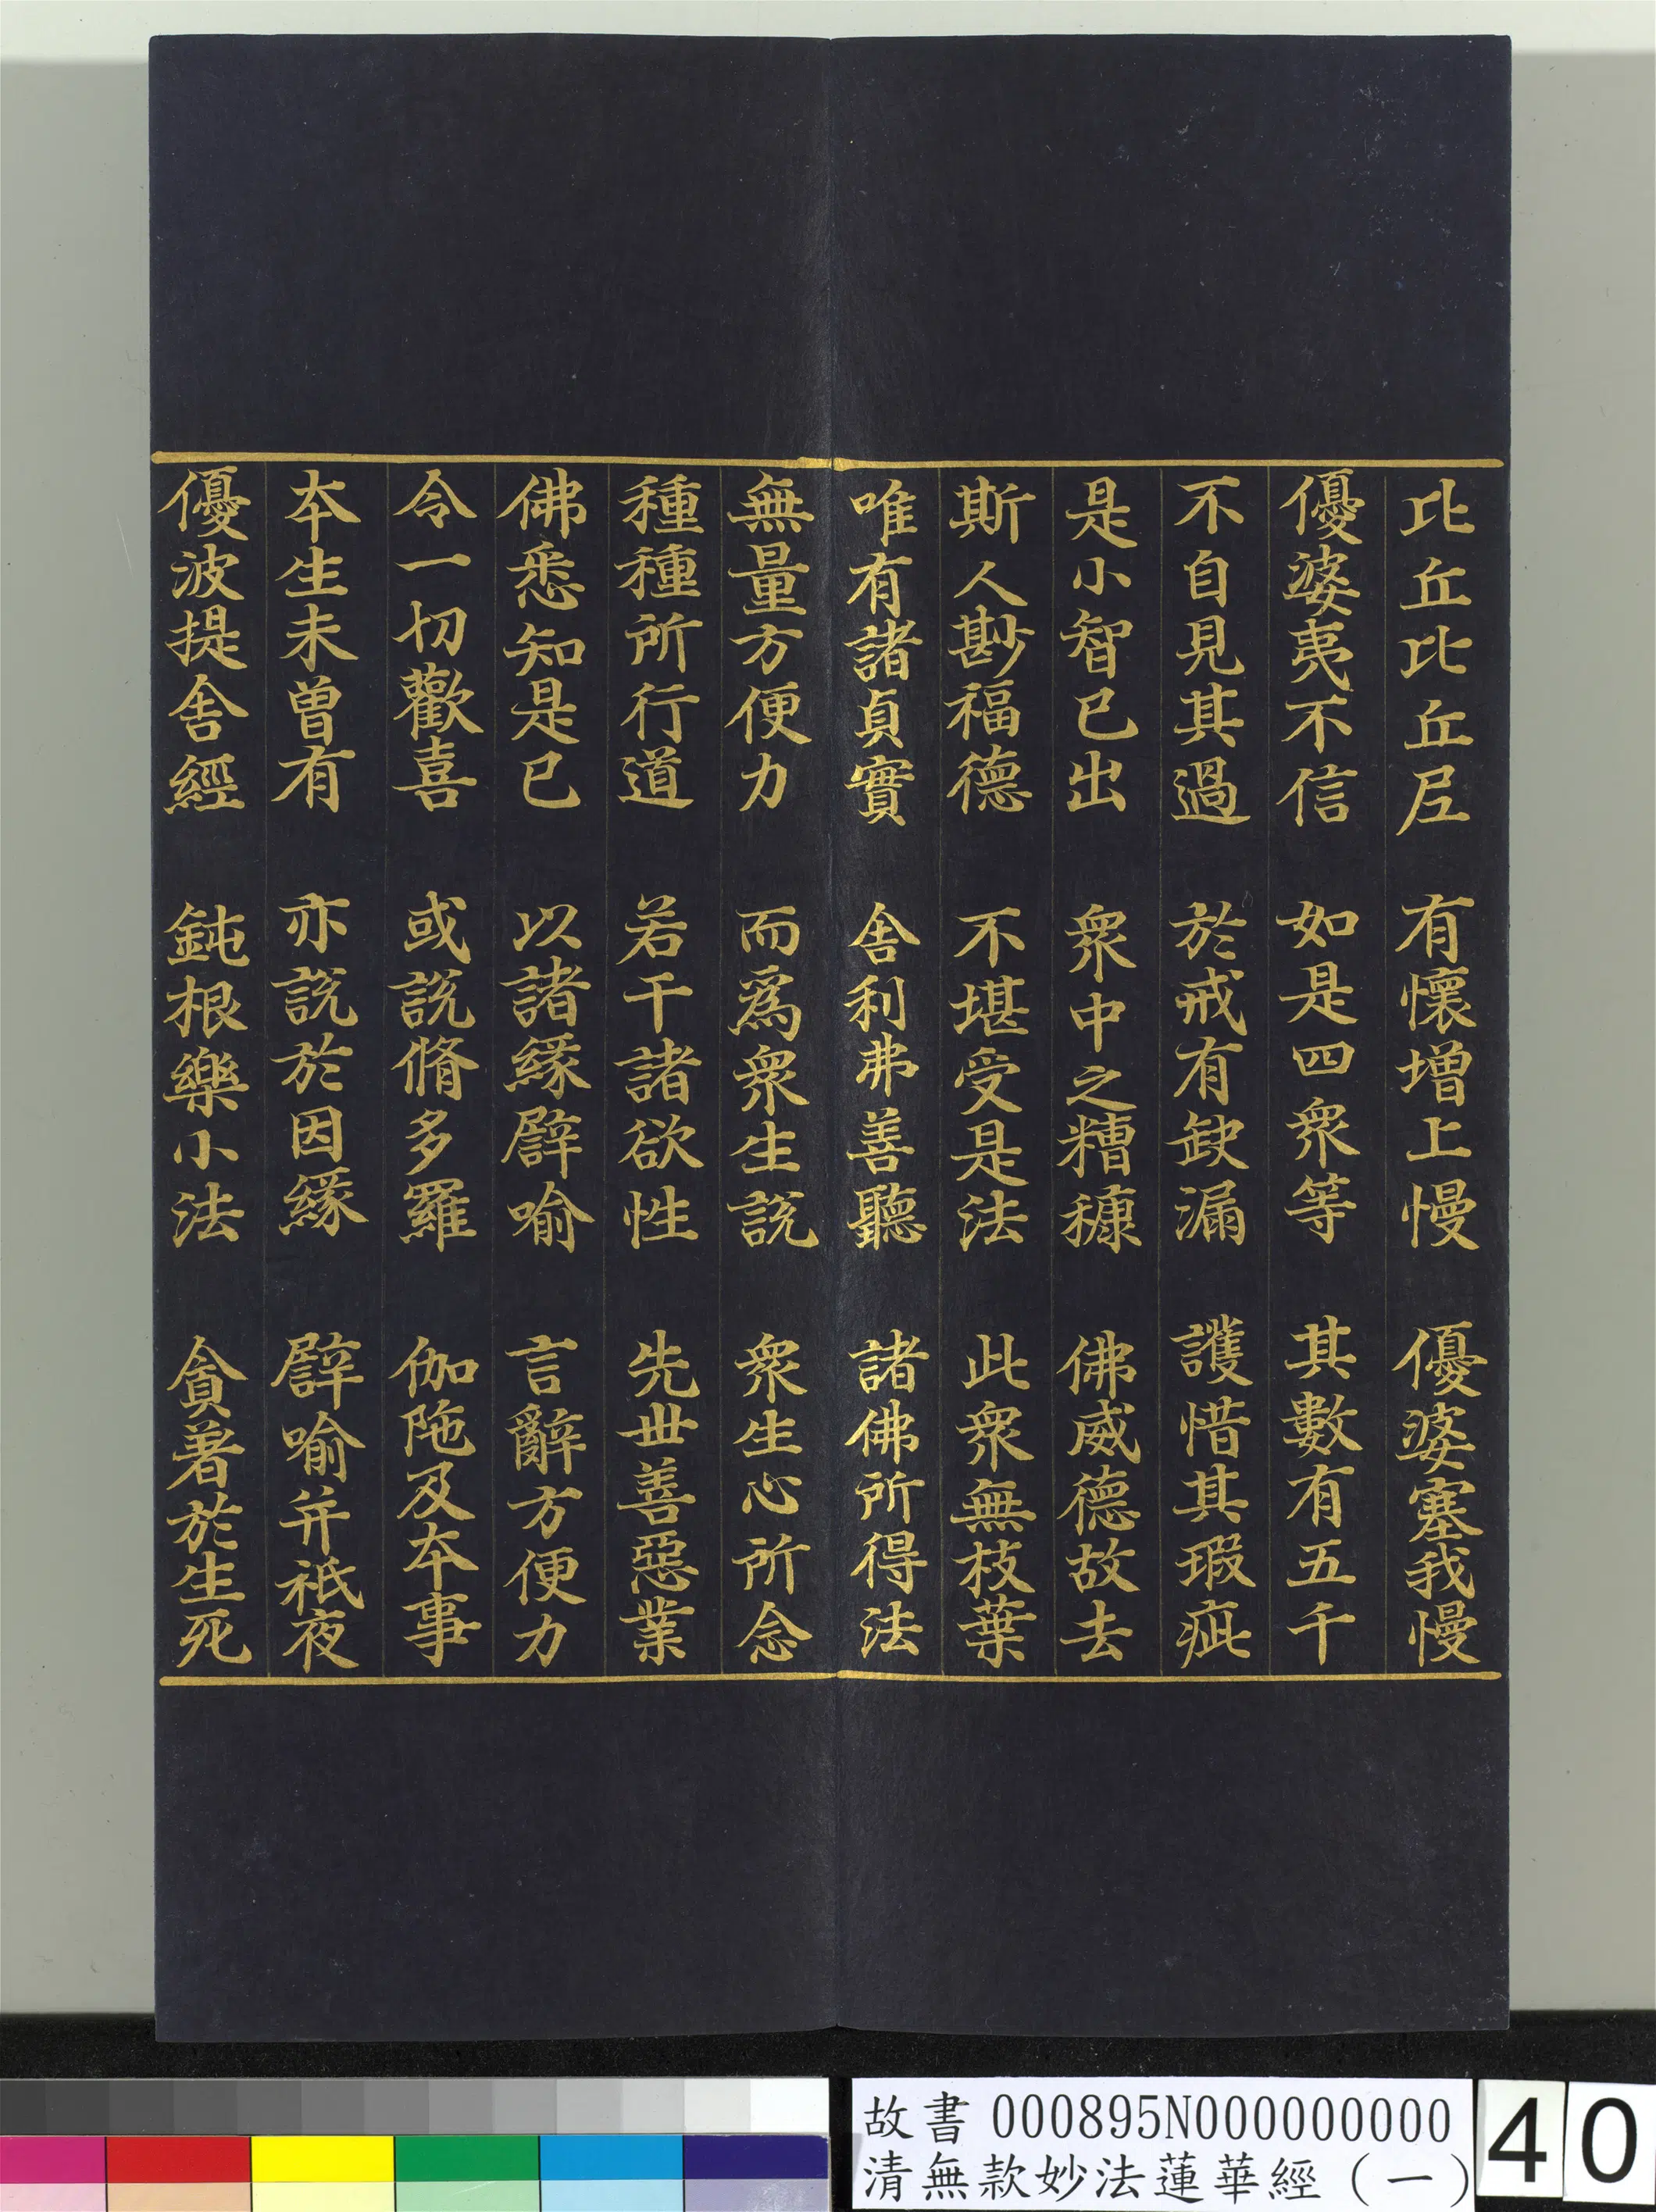 比丘比丘尼　有懷增上慢　優婆塞我慢
優婆夷不信　如是四衆等　其數有五千
不自見其過　於戒有缺漏　護惜其瑕疵
是小智已出　衆中之糟糠　佛威德故去
斯人尠福德　不堪受是法　此衆無枝葉
唯有諸貞實　舍利弗善聽　諸佛所得法
無量方便力　而爲衆生說　衆生心所念
種種所行道　若干諸欲性　先世善惡業
佛悉知是已　以諸緣譬喻　言辭方便力
令一切歡喜　或說脩多羅　伽陁及本事
本生未曾有　亦說於因緣　譬喻并祇夜
優波提舍經　鈍根樂小法　貪著於生死
故書 000895N000000000
清無款妙法蓮華經（一）
40